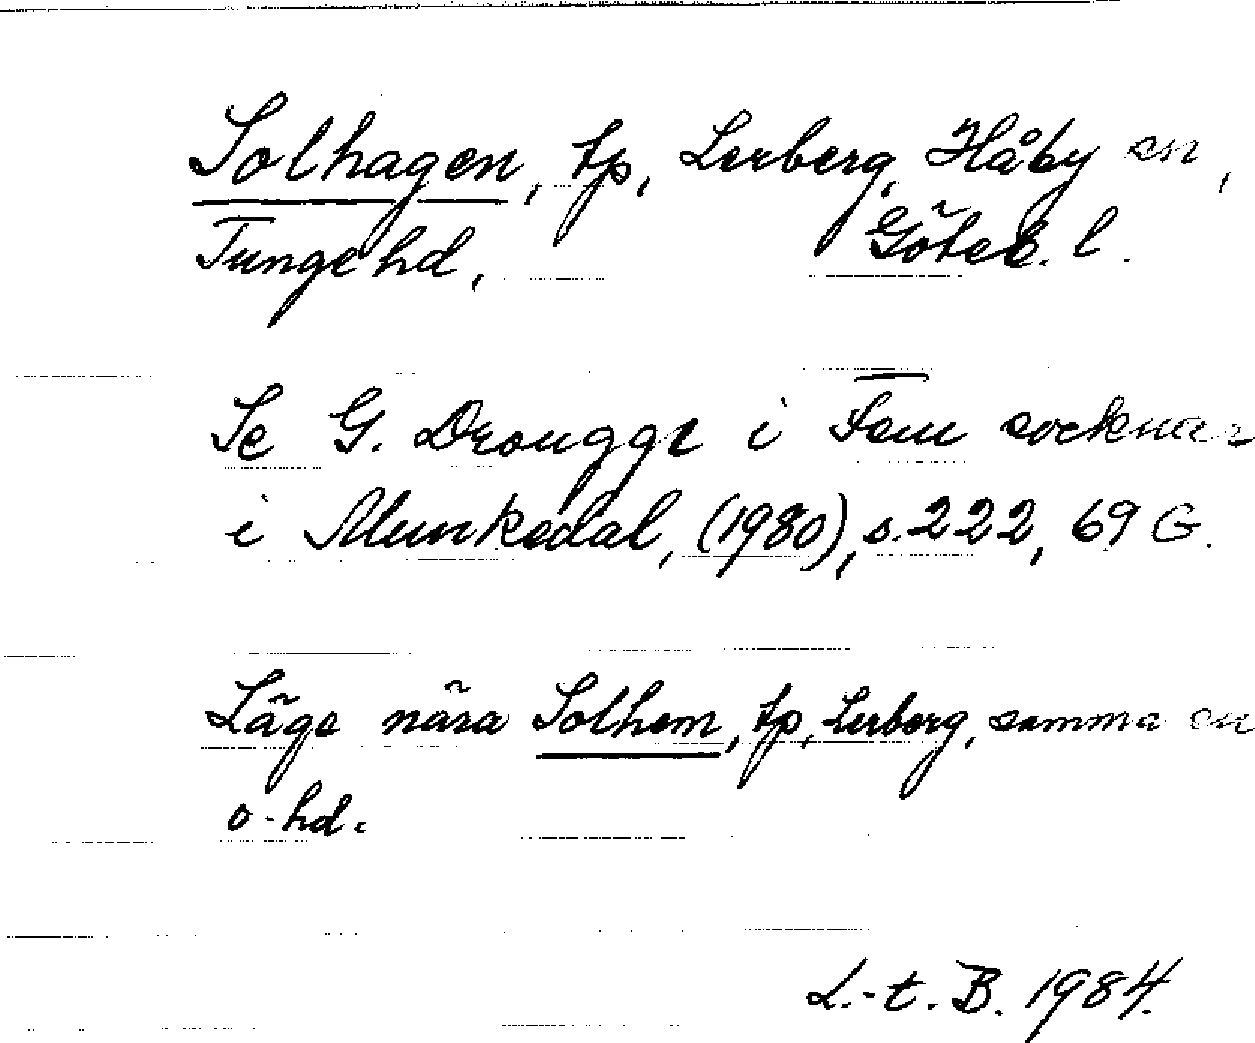 Solhagen, tp, Lerberg, Håby sn,
Tunge hd, Göteb. l.
Se G. Drougge i Fem socknar
i Munkedal, (1980), s. 222, 69 G.
Läge nära Solhem, tp, Lerberg, samma sn
o. hd.
L.-t. B. 1984.